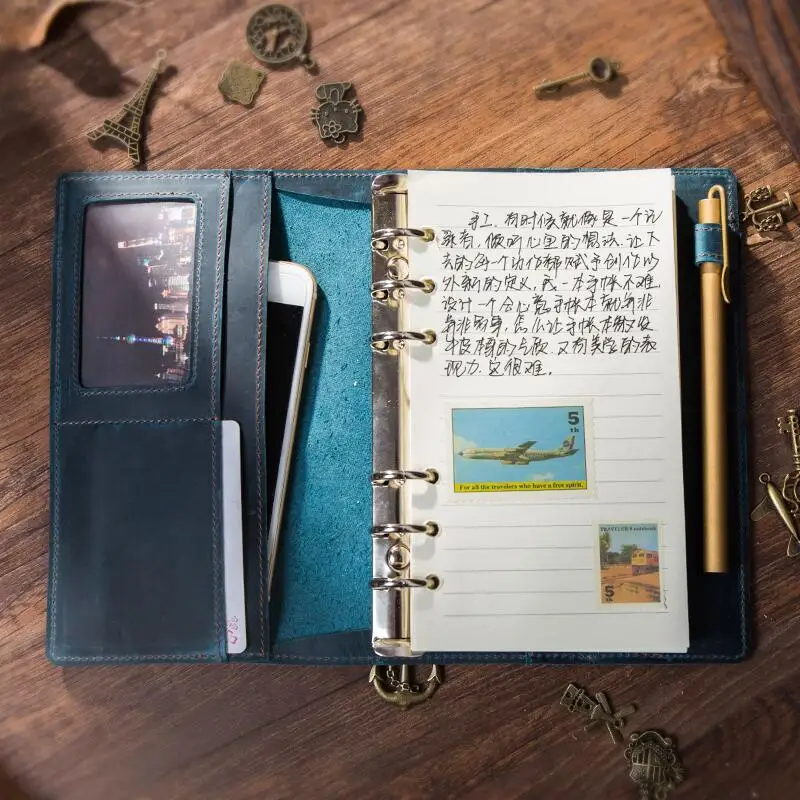 手工,有时候就像是一个记
录者,做的心里的想法,让下
去的每个都赋予创作以
外新的定义,一本手帐不难,
设计一个合心意手帐本就并非
并非易事,怎么让手帐本
的气质,又有美学的表
现力,它很难。
5
th
For all the travelers who have a free spirit.
TRAVELER'S notebook
5
th